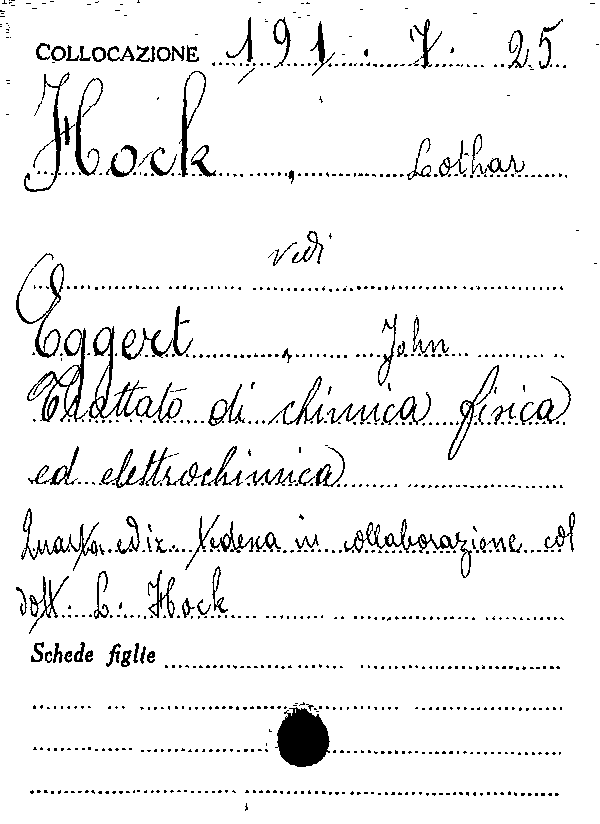 COLLOCAZIONE 191. 7. 25
Hock, Lothar
vedi
Eggert, John
Trattato di chimica fisica
ed elettrochimica
Quarta ediz. tedesca in collaborazione col
dott. L. Hock
Schede figlie